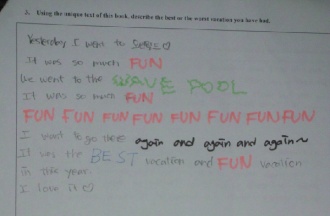 3. Using the unique text of this book, describe the best or the worst vacation you have had.
Yesterday I went to
It was so much FUN
We went to the WAVE POOL
It was so much FUN
FUN FUN FUN FUN FUN FUN FUN FUN
I want to go there again and again and again~
It was the BEST vacation and FUN vacation
in this year.
I love it